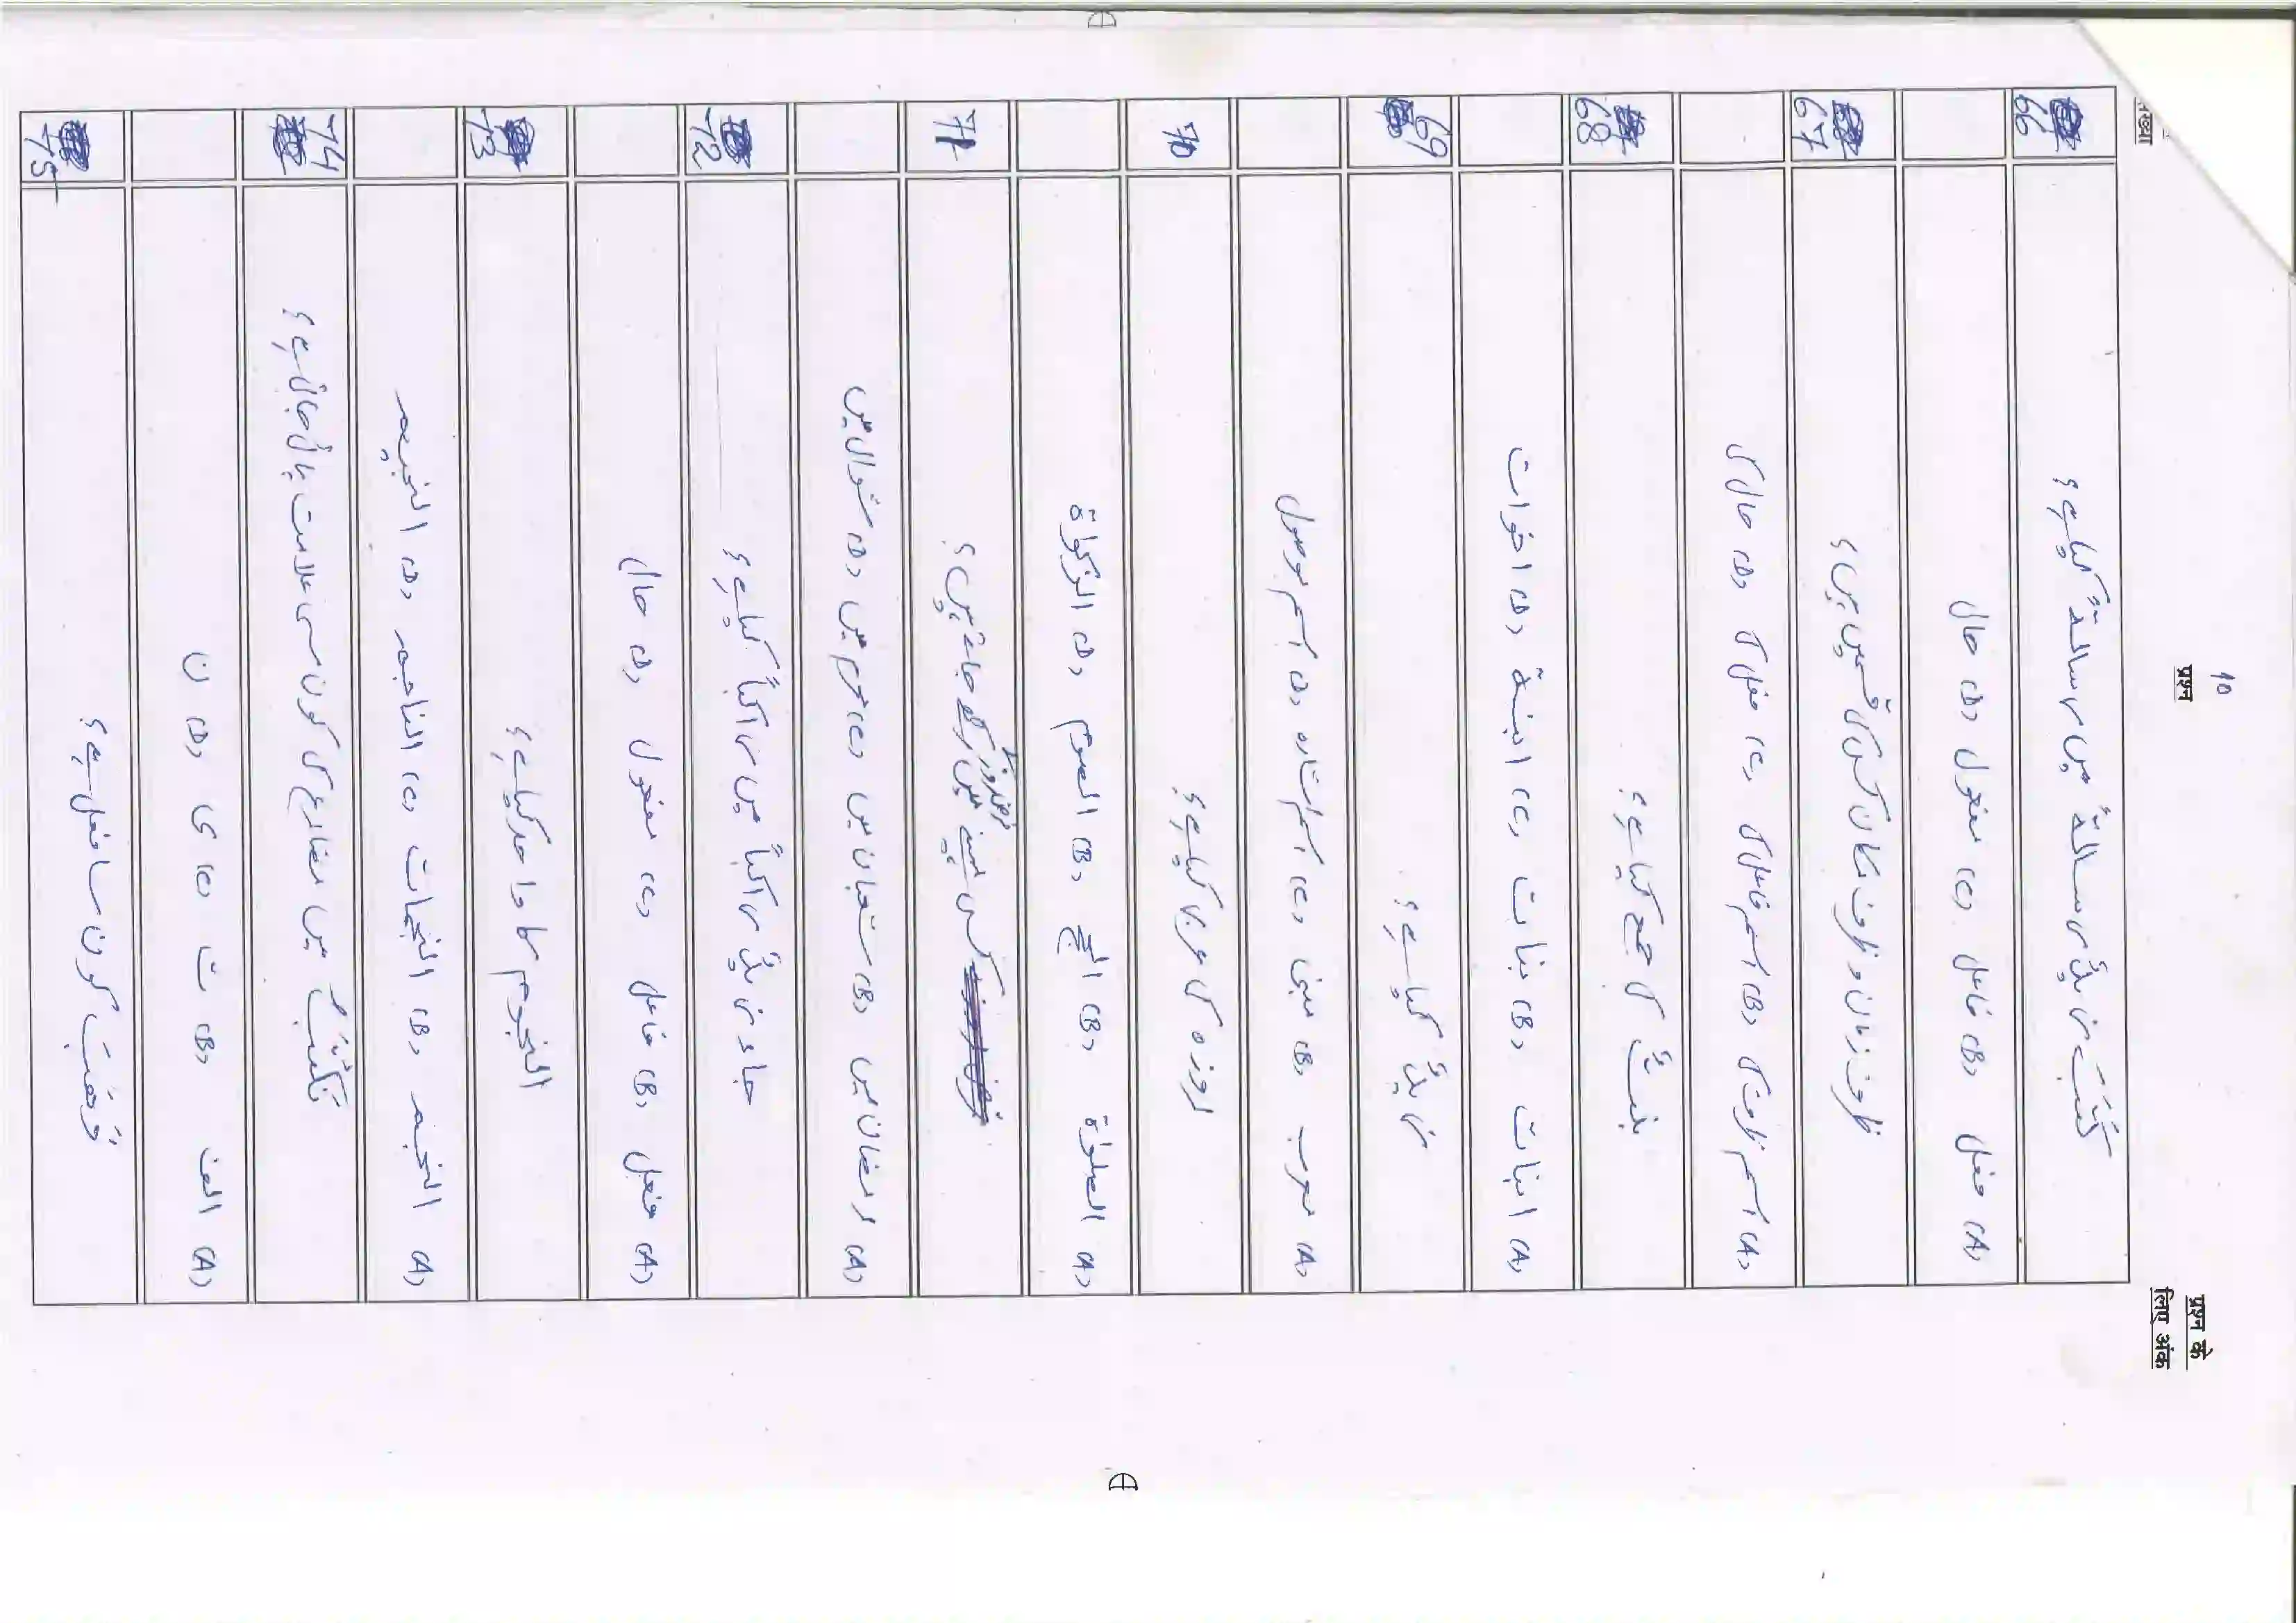 10
प्रश्न
प्रश्न के
लिए अंक
66 کَتَبَ زیدٌ رسالۃً میں رسالۃً کیا ہے؟
(A) فعل (B) فاعل (C) مفعول (D) حال
67 ظرف زمان و ظرف مکان کس کی قسمیں ہیں؟
(A) اسم ظرف کی (B) اسم فاعل کی (C) فعل کی (D) حال کی
68 بنتٌ کی جمع کیا ہے؟
(A) ابنات (B) بنات (C) ابنة (D) اخوات
69 زیدٌ کیا ہے؟
(A) معرب (B) مبنی (C) اسم اشارہ (D) اسم موصول
70 روزہ کی عربی کیا ہے؟
(A) الصلوٰة (B) الحج (B) الصوم (D) الزکوٰة
71 کس مہینے میں فرض روزے رکھے جاتے ہیں؟
(A) رمضان میں (B) شعبان میں (C) محرم میں (D) شوال میں
72 جاء زیدٌ راکباً میں راکباً کیا ہے؟
(A) فعل (B) فاعل (C) مفعول (D) حال
73 النجوم کا واحد کیا ہے؟
(A) النجم (B) النجمات (C) الناجم (D) النجیم
74 تَکتُبُ میں مضارع کی کون سی علامت پائی جاتی ہے؟
(A) الف (B) ت (C) ی (D) ن
75 کون سا فعل ہے؟